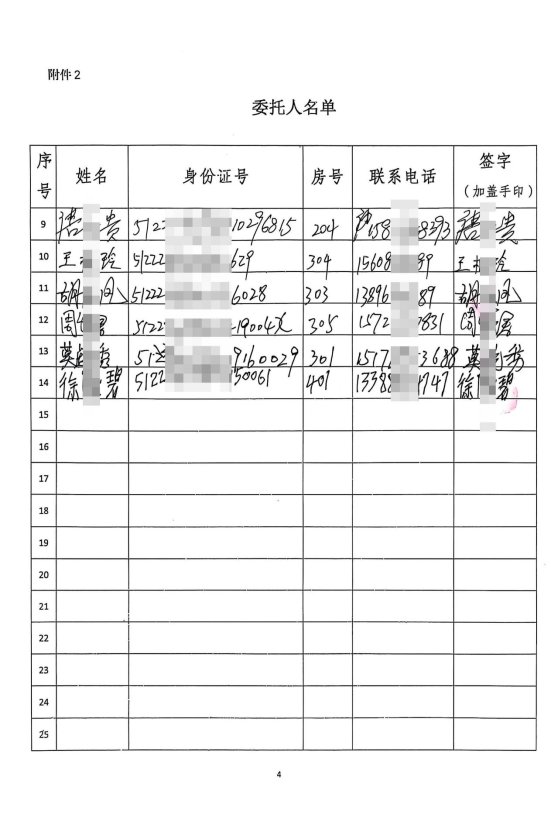 附件2
委托人名单
序号 姓名 身份证号 房号 联系电话 签字（加盖手印）
9 贵 5122 10296815 204 158 8393 贵
10 王 玲 51222 629 304 15608 89 王 玲
11 胡 凤 51222 6028 303 13896 89 胡 凤
12 周 君 5122 19004X 305 1572 7831 周 君
13 莫 秀 512 9160029 301 1517 3688 莫 秀
14 徐 碧 5122 50061 401 13388 1747 徐 碧
15
16
17
18
19
20
21
22
23
24
25
4